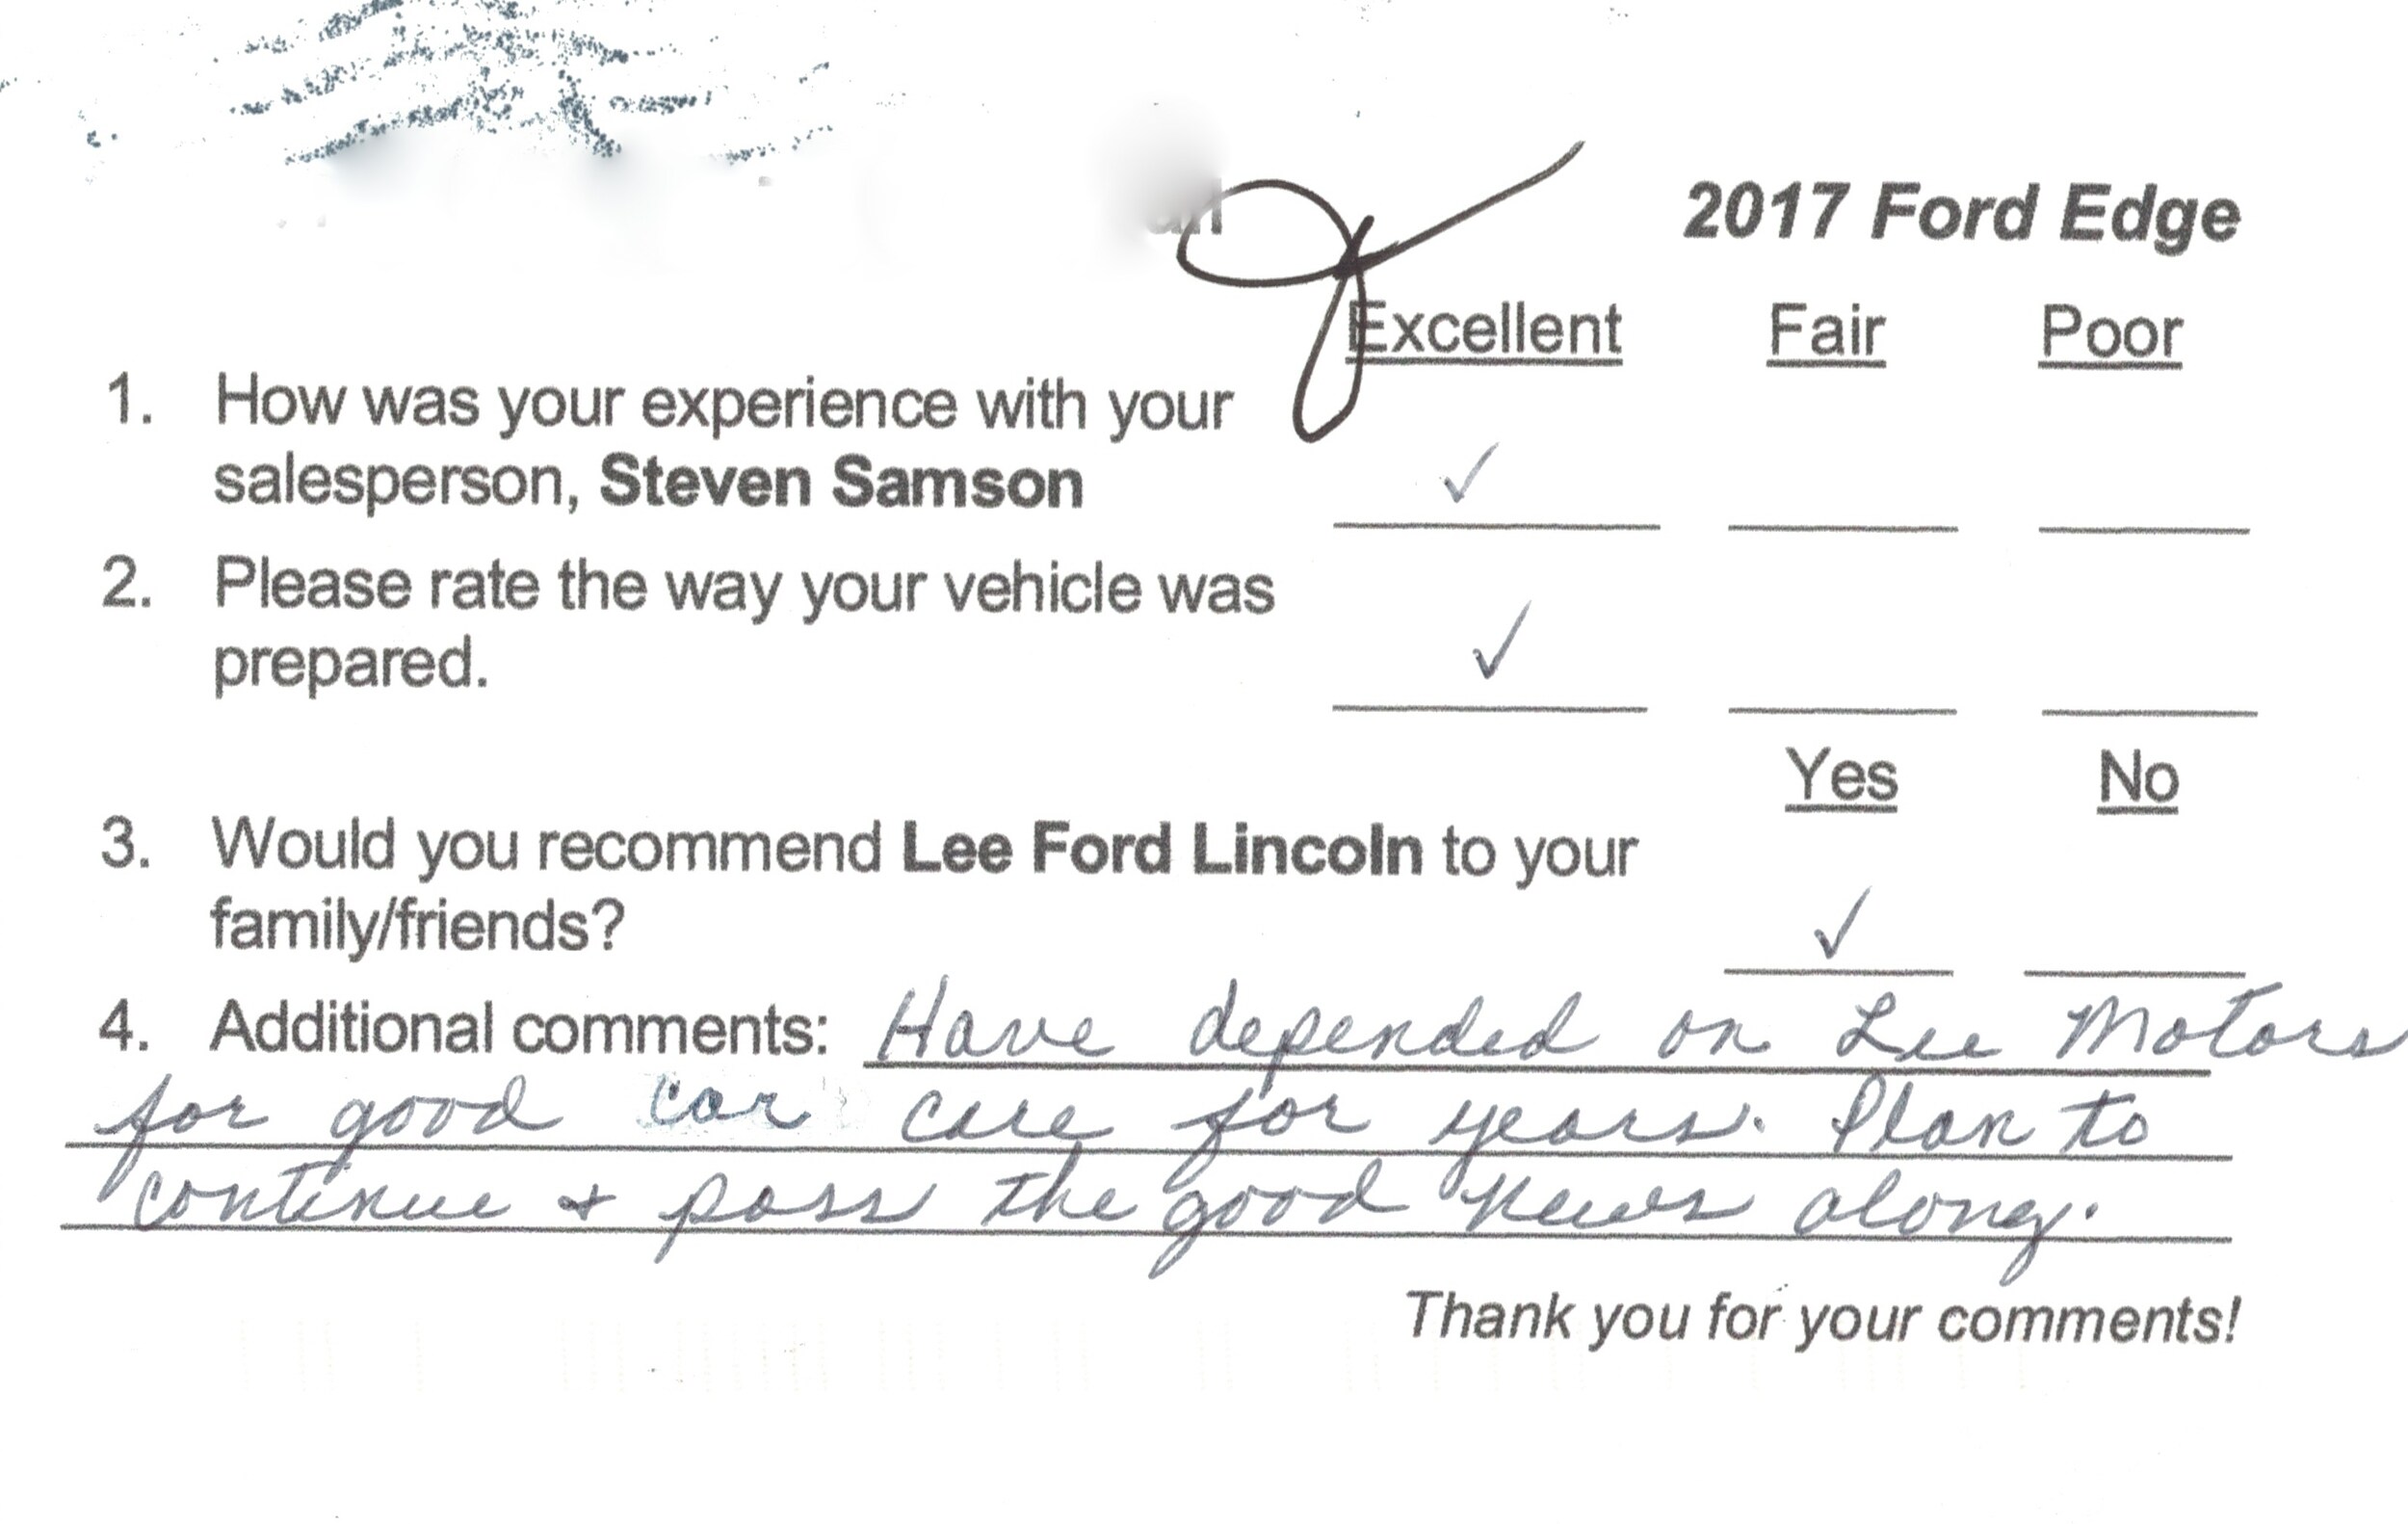 2017 Ford Edge
Excellent Fair Poor
1. How was your experience with your
salesperson, Steven Samson ✓
2. Please rate the way your vehicle was
prepared. ✓
Yes No
3. Would you recommend Lee Ford Lincoln to your
family/friends? ✓
4. Additional comments: Have depended on Lee Motors
for good car care for years. Plan to
continue + pass the good news along.
Thank you for your comments!